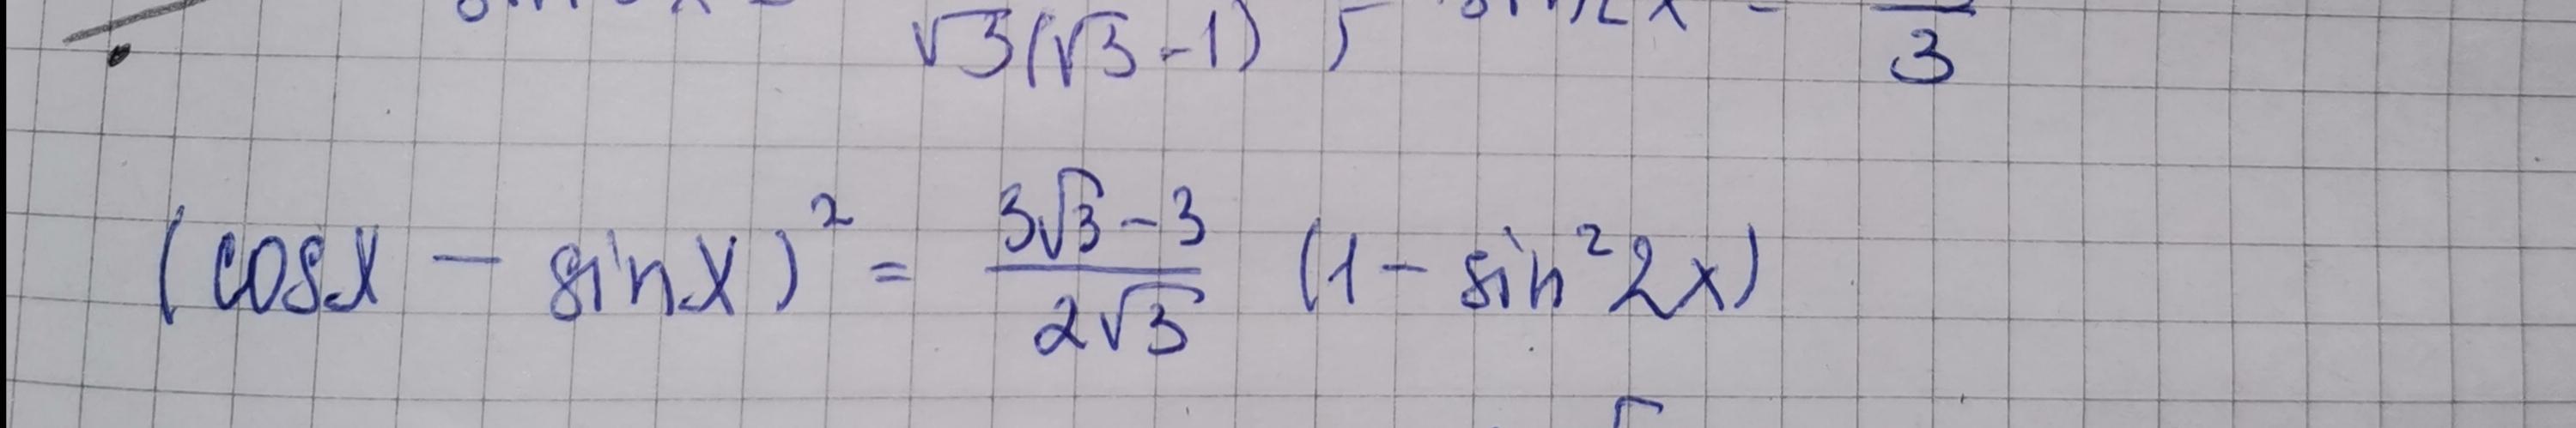 √3(√3-1) sin2x = 3
(cosx - sinx)² = (3√3-3)/(2√3) (1 - sin²2x)